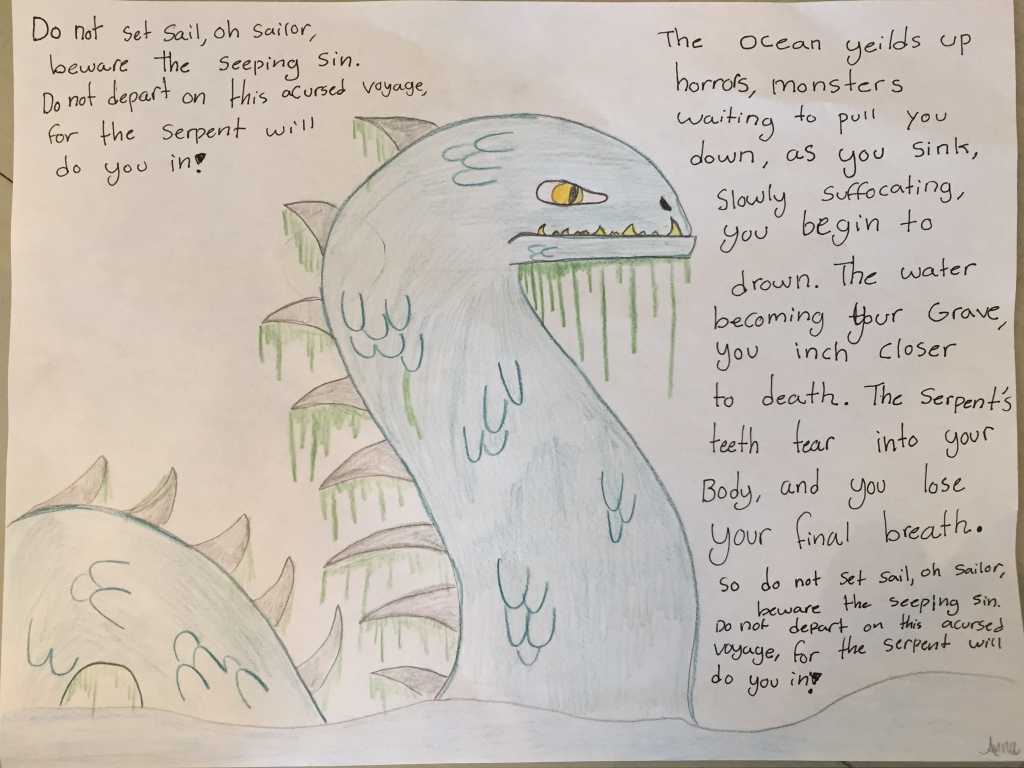 Do not set sail, oh sailor,
beware the seeping sin.
Do not depart on this acursed voyage,
for the serpent will
do you in!
The ocean yeilds up
horrors, monsters
waiting to pull you
down, as you sink,
slowly suffocating,
you begin to
drown. The water
becoming your Grave,
you inch closer
to death. The serpent's
teeth tear into your
Body, and you lose
your final breath.
So do not set sail, oh sailor,
beware the seeping sin.
Do not depart on this acursed
voyage, for the serpent will
do you in!
Anna